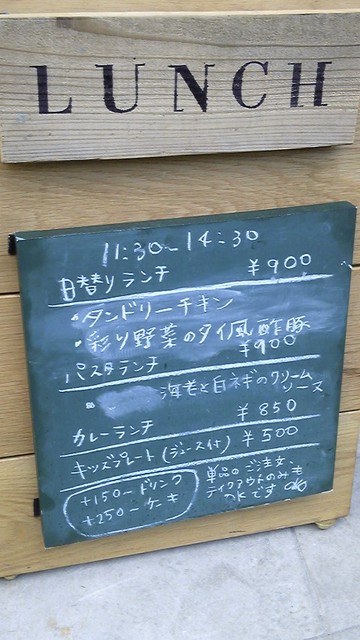 LUNCH
11:30~14:30
日替りランチ ¥900
・タンドリーチキン
・彩り野菜のタイ風酢豚
パスタランチ ¥900
海老と白ネギのクリーム
ソース
カレーランチ ¥850
キッズプレート(ジュース付) ¥500
+150-ドリンク
+250-ケーキ
単品のご注文、
テイクアウトのみも
OKです